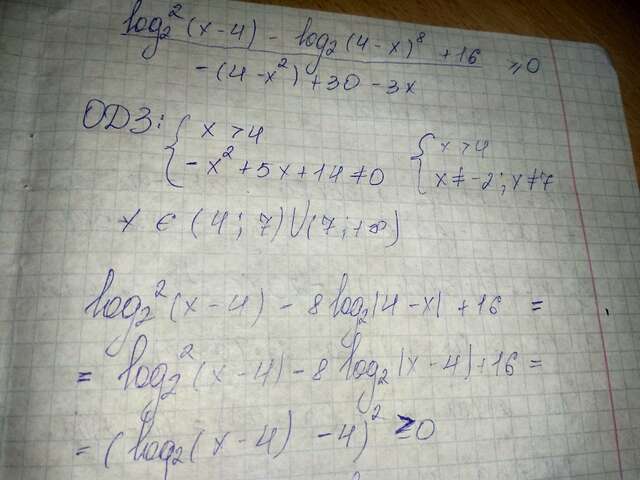 log₂²(x-4) - log₂(4-x)⁸ +16 ≥0
-(4-x²)+30-3x
ОДЗ: { x>4 { x>4
{ -x²+5x+14≠0 { x≠-2; x≠7
x ∈ (4;7)∪(7;+∞)
log₂²(x-4) - 8log₂|4-x| +16 =
= log₂²(x-4) - 8 log₂|x-4| +16 =
= (log₂(x-4) -4)² ≥0